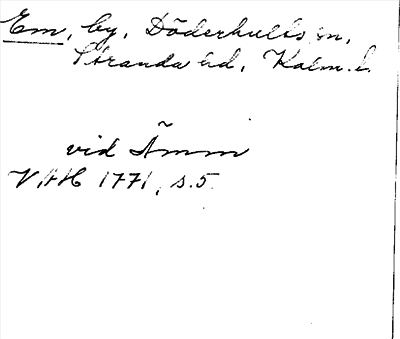 Em, by, Döderhults sn,
Stranda hd, Kalm. l.
vid Ämm
VAH 1771, s. 5.